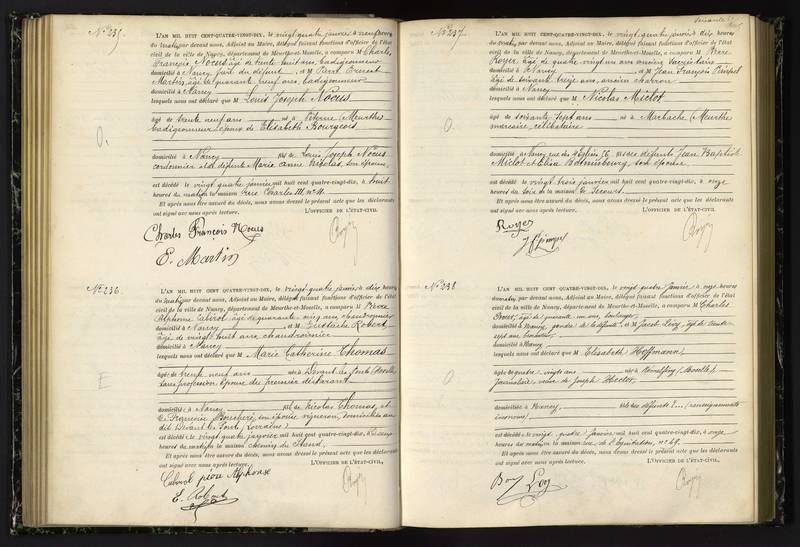 N° 235.
L'AN MIL HUIT CENT-QUATRE-VINGT-DIX, le vingt quatre janvier à neuf heures
du matin par devant nous, Adjoint au Maire, délégué faisant fonctions d'officier de l'état
civil de la ville de Nancy, département de Meurthe-et-Moselle, a comparu M Charles
François Nocus, âgé de trente huit ans, badigeonneur
domicilié à Nancy, du défunt, et M Ernest
Martin, âgé de quarante neuf ans, badigeonneur
domicilié à Nancy
lesquels nous ont déclaré que M Louis Joseph Nocus
âgé de trente neuf ans né à (Meurthe)
badigeonneur, époux de Elisabeth Bourgeois
domicilié à Nancy fils de Louis Joseph Nocus
cordonnier et défunte Marie Anne Nicolas, son épouse
est décédé le vingt quatre janvier mil huit cent quatre-vingt-dix, à huit
heures du matin en la maison rue Charles III, n° 11.
Et après nous être assuré du décès, nous avons dressé le présent acte que les déclarants
ont signé avec nous après lecture. L'OFFICIER DE L'ÉTAT-CIVIL
Charles François Nocus
E. Martin
N° 236
L'AN MIL HUIT CENT QUATRE-VINGT-DIX, le vingt quatre janvier, à dix heures
du matin par devant nous, Adjoint au Maire, délégué faisant fonctions d'officier de l'état
civil de la ville de Nancy, département de Meurthe-et-Moselle, a comparu M Pierre
Alphonse Cabord âgé de quarante cinq ans, chaudronnier
domicilié à Nancy et M Eustache Robert,
âgé de vingt huit ans, chaudronnier
domicilié à Nancy
lesquels nous ont déclaré que M Marie Catherine Thomas
âgé de trente ans né à Devant les Ponts (Moselle)
sans profession, épouse du premier déclarant
domicilié à Nancy fille de Nicolas Thomas, et
de son épouse, vigneron, domiciliés au
dit Devant les Ponts (Lorraine)
est décédé le vingt quatre janvier mil huit cent quatre-vingt-dix, à
heures du matin en la maison chemin du
Et après nous être assuré du décès, nous avons dressé le présent acte que les déclarants
ont signé avec nous après lecture. L'OFFICIER DE L'ÉTAT-CIVIL,
Alphonse
E. Robert
N° 237
L'AN MIL HUIT CENT QUATRE-VINGT-DIX, le vingt quatre janvier, à dix heures
du matin, par devant nous, Adjoint au Maire, délégué faisant fonctions d'officier de l'état
civil de la ville de Nancy, département de Meurthe-et-Moselle, a comparu M Pierre
Royer, âgé de quatre vingt un ans, ancien
domicilié à Nancy et M Jean François
âgé de soixante treize ans, ancien charron
domicilié à Nancy
lesquels nous ont déclaré que M Nicolas Miclot
âgé de soixante sept ans né à Marbache (Meurthe
célibataire
domicilié à Nancy fils des défunts Jean Baptiste
Miclot et Elisa son épouse
est décédé le vingt trois janvier mil huit cent quatre-vingt-dix, à onze
heures du soir en la maison de Secours
Et après nous être assuré du décès, nous avons dressé le présent acte que les déclarants
ont signé avec nous après lecture. L'OFFICIER DE L'ÉTAT-CIVIL.
Royer
N° 238
L'AN MIL HUIT CENT QUATRE-VINGT-DIX, le vingt quatre janvier à onze heures
du matin par devant nous, Adjoint au Maire, délégué faisant fonctions d'officier de l'état
civil de la ville de Nancy, département de Meurthe-et-Moselle, a comparu M Charles
âgé de quarante un ans, boulanger,
domicilié à Nancy, gendre de la défunte, et M Jacob Levy, âgé de trente
sept ans,
domicilié à Nancy
lesquels nous ont déclaré que M Elisabeth Hoffmann
âgé de quatre vingts ans née à (Moselle)
journalière, veuve de Joseph Hector,
domicilié à Nancy, fille des défunts ?... (renseignements
inconnus)
est décédé le vingt quatre janvier mil huit cent quatre-vingt-dix, à onze
heures du matin en la maison rue de l'Equitation, n° 69.
Et après nous être assuré du décès, nous avons dressé le présent acte que les déclarants
ont signé avec nous après lecture. L'OFFICIER DE L'ÉTAT-CIVIL,
Levy